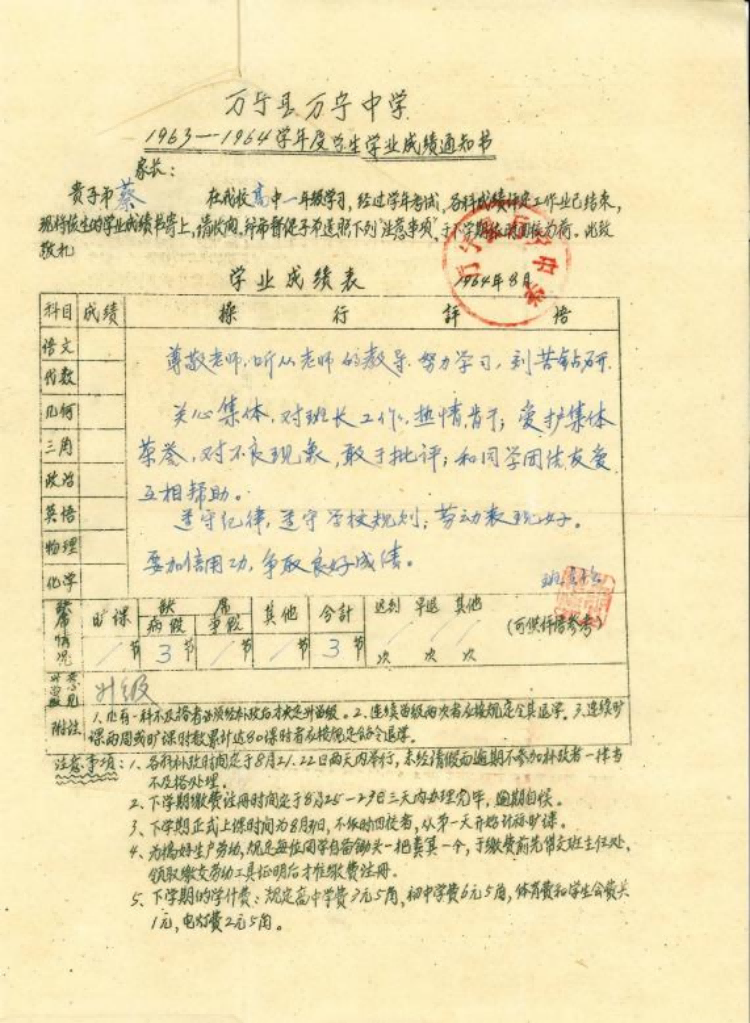 万宁县万宁中学
1963—1964学年度学生学业成绩通知书
家长：
贵子弟蔡 在我校高中一年级学习，经过学年考试，各科成绩评定工作业已结束，
现将该生的学业成绩书寄上，请收阅。并希督促子弟遵照下列"注意事项"，于下学期依时回校为荷。此致
敬礼
学业成绩表
1964年8月
科目 成绩 操行評语
语文
代数
几何
三角
政治
英语
物理
化学
尊敬老师，听从老师的教导，努力学习，刻苦钻研
关心集体，对班长工作，热情肯干；爱护集体
荣誉，对不良现象，敢于批评；和同学团结友爱
互相帮助。
遵守纪律，遵守学校规则；劳动表现好。
要加倍用功，争取良好成绩。
班主任
缺席情况 旷课 缺席 病假 事假 其他 合計 迟到 早退 其他
/节 3节 /节 /节 3节 /次 /次 /次 (可供评语参考)
升留级意见 升级
附注 1、凡有一科不及格者必须经补考后才决定升留级。2、连续留级两次者应按规定令其退学。3、连续旷
课两周或旷课时数累计达80课时者应按规定给令退学。
注意事项：1、各科补考时间定于8月21.22日两天内举行，未经请假而逾期不参加补考者一律当
不及格处理。
2、下学期缴费注册时间定于8月25—27日三天内办理完毕，逾期自误。
3、下学期正式上课时间为8月 日，不依时回校者，从第一天开始计算旷课。
4、为搞好生产劳动，规定每位同学自备锄头一把粪箕一个，于缴费前先带交班主任处，
领取缴交劳动工具证明后才准缴费注册。
5、下学期的学什费：规定高中学费7元5角，初中学费6元5角，体育费和学生会费共
1元，电灯费2元5角。